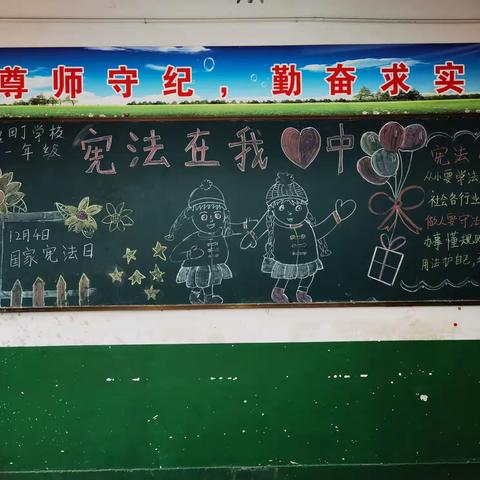 尊师守纪，勤奋求实
町学校
一年级
宪法在我❤中
12月4日
国家宪法日
宪法
从小要学法
社会各行业
做人要守法
办事懂规
用法护自己,